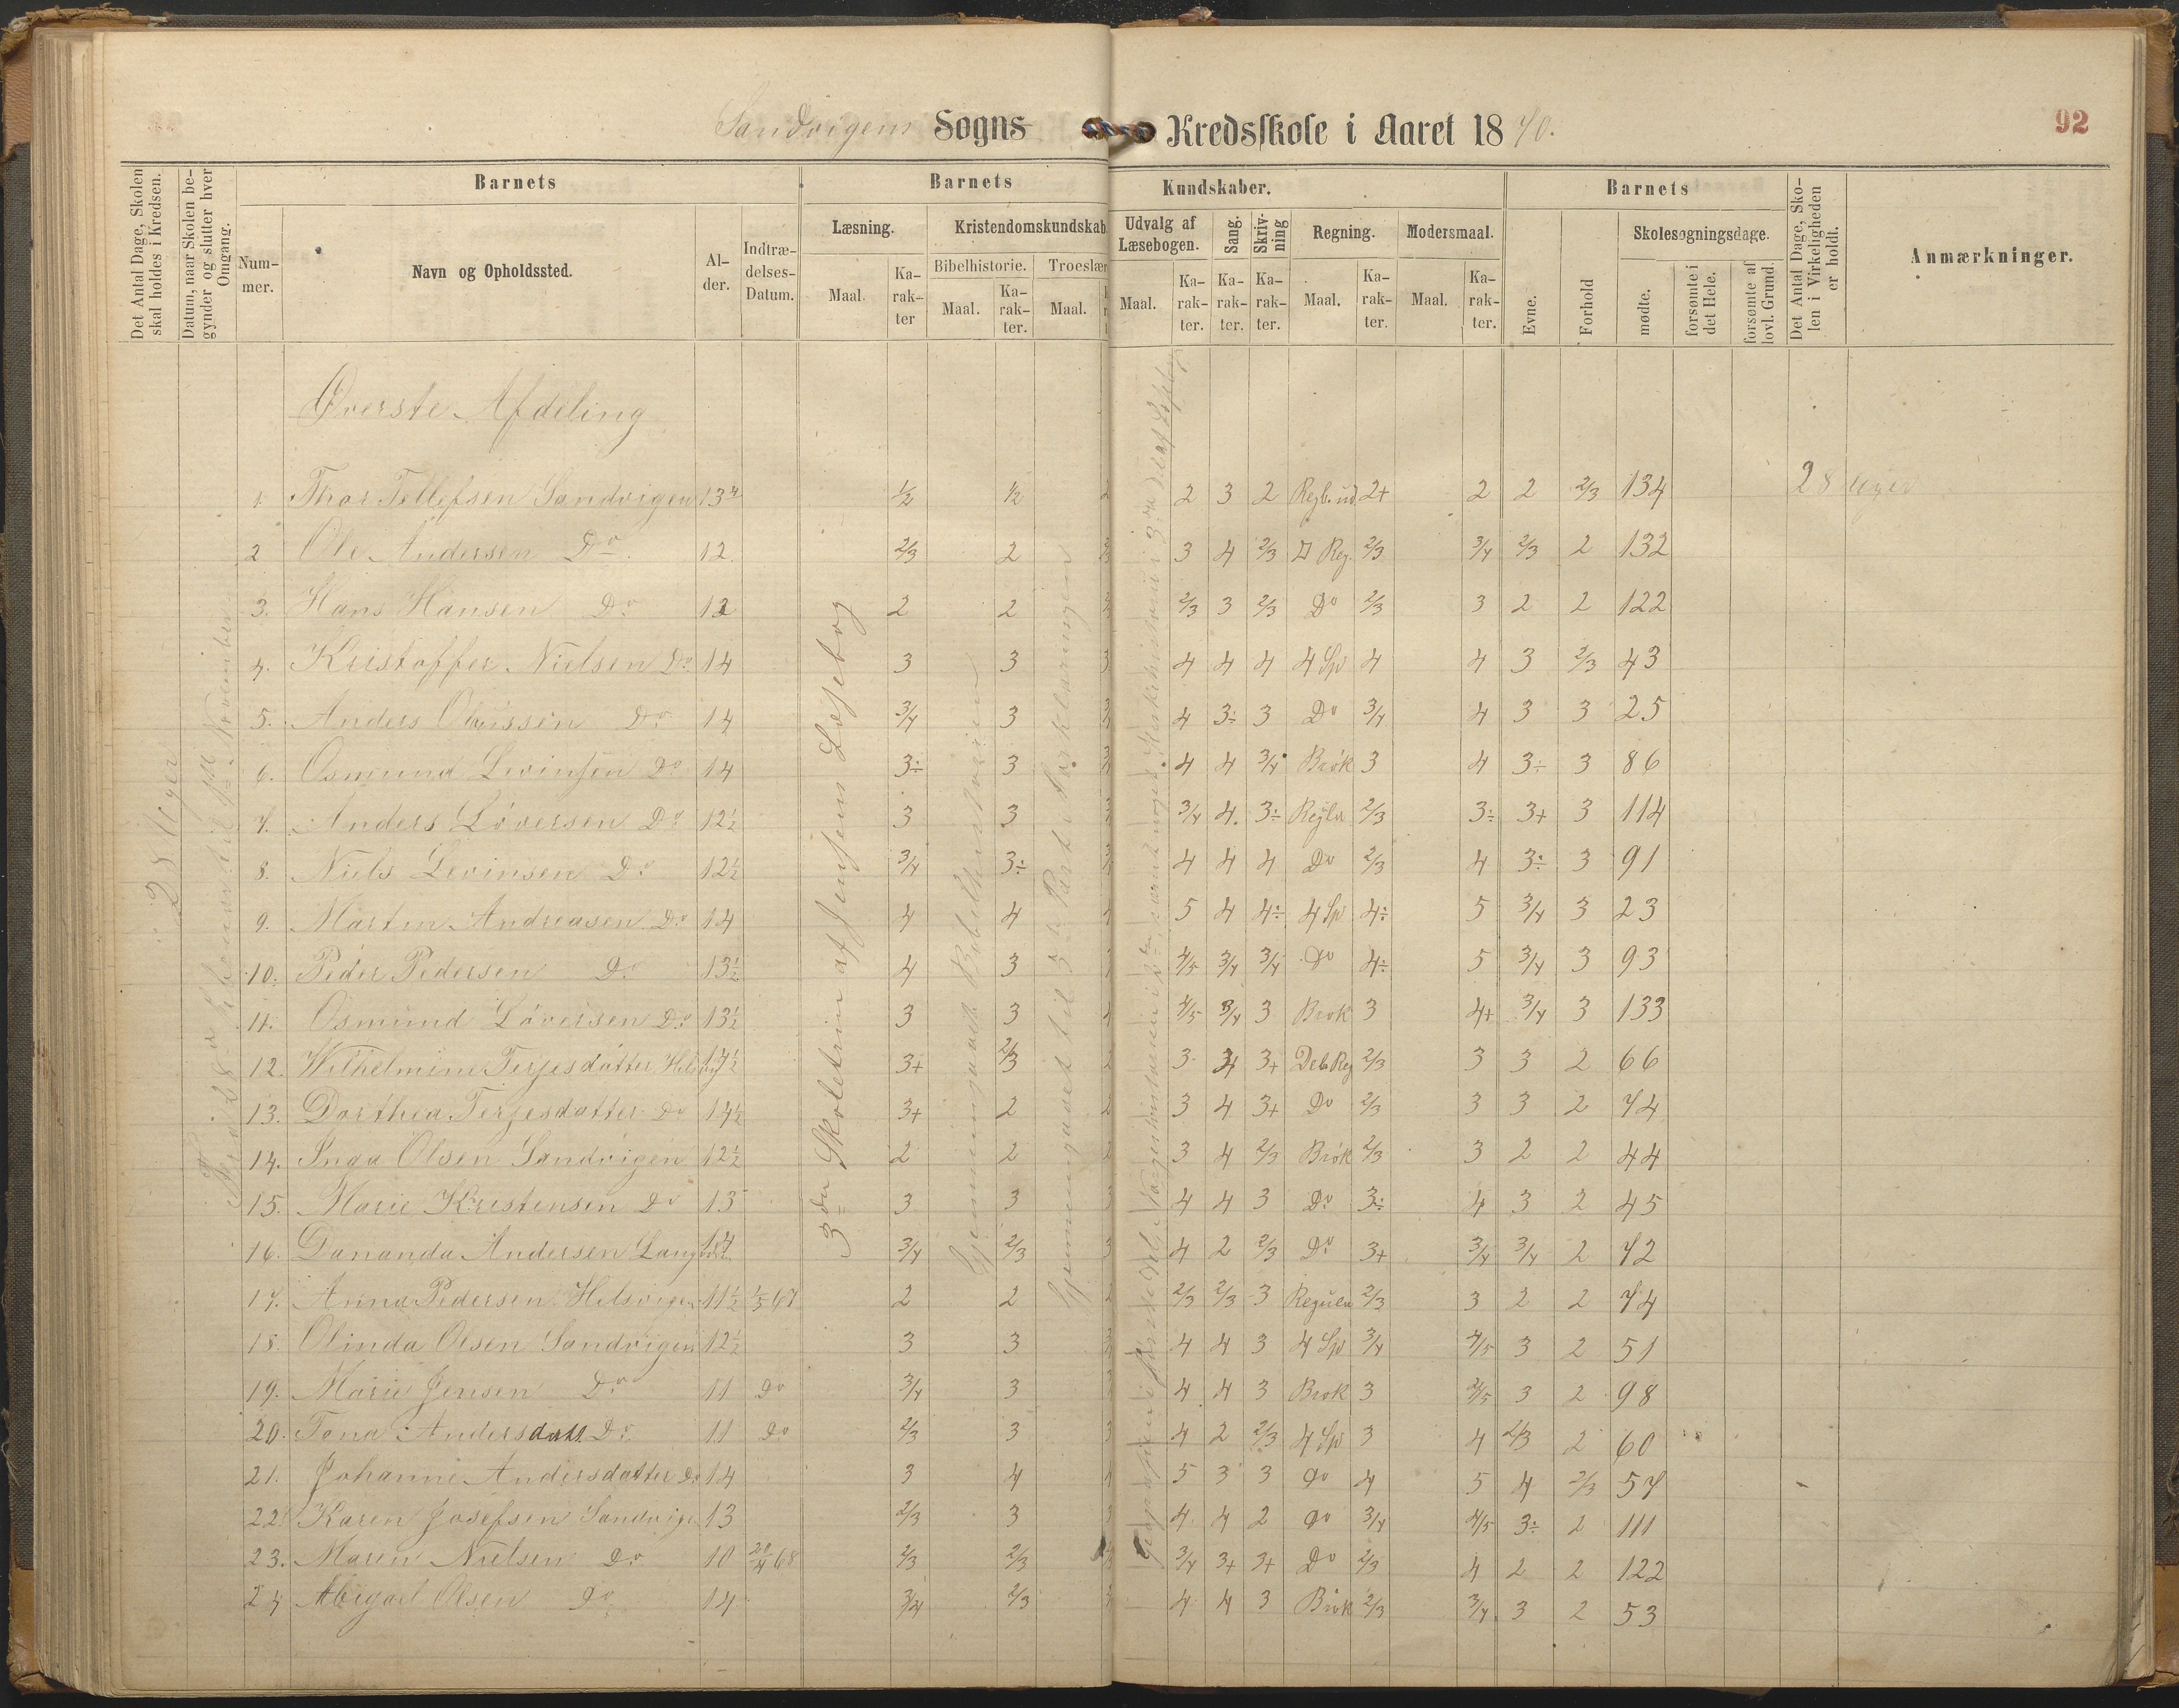 Sandvigens Sogns Kredsskole i Aaret 1870.
92
Det Antal Dage, Skolen skal holdes i Kredsen.
Datum, naar Skolen begynder og slutter hver Omgang.
Barnets
Nummer.
Navn og Opholdssted.
Alder.
Indtrædelses-Datum.
Barnets
Kundskaber.
Læsning.
Maal.
Karakter
Kristendomskundskab
Bibelhistorie.
Maal.
Karakter.
Troeslær
Maal.
Udvalg af Læsebogen.
Maal.
Karakter.
Sang.
Karakter.
Skrivning
Karakter.
Regning.
Maal.
Karakter.
Modersmaal.
Maal.
Karakter.
Barnets
Evne.
Forhold
Skolesøgningsdage.
mødte.
forsømte i det Hele.
forsømte af lovl. Grund.
Det Antal Dage, Skolen i Virkeligheden er holdt.
Anmærkninger.
28 Uger
3die Skoletrin af Jensens Læsebog
Gjennemgaaet Bibelhistorien
Øverste Afdeling
1. Thor Tellefsen Sandvigen 13 ½ ½ 2 2 3 2 Regb. ud 2+ 2 2 2/3 134 28 Uger
2 Ole Andersen Do 12. 2/3 2 3 4 2/3 Reg. 2/3 3/4 2/3 2 132
3. Hans Hansen Do 12 2 2 2/3 3 2/3 Do 2/3 3 2 2 122
4. Kristoffer Nielsen Do 14 3 3 3 4 4 4 4 Sp 4 4 3 2/3 43
5. Anders Do 14 3/4 3 4 3÷ 3 Do 3/4 4 3 3 25
6. Osmund Levinsen Do 14 3÷ 3 4 4 3/4 Brøk 3 4 3÷ 3 86
7. Anders Löversen Do 12½ 3 3 3/4 4. 3÷ 2/3 3÷ 3+ 3 114
8. Niels Levinsen Do 12½ 3/4 3÷ 4 4 4 Do 2/3 4 3÷ 3 91
9. Martin Andreasen Do 14 4 4 4 5 4 4÷ 4 Sp 4÷ 5 3/4 3 23
10. Peder Pedersen Do 13½ 4 3 4/5 3/4 3/4 Do 4÷ 5 3/4 3 93
11. Osmund Löversen Do 13½ 3 3 4 4/5 3/4 3 Brøk 3 4+ 3/4 3 133
12. Wilhelmine Terjesdatter 3+ 2/3 2 3 4 3+ Reg 2/3 3 3 2 66
13. Dorthea Terjesdatter Do 14½ 3+ 2 2 3 4 3+ Do 2/3 3 3 2 74
14. Inga Olsen Sandvigen 12½ 2 2 2 3 4 2/3 Brøk 2/3 3 2 2 44
15. Marie Kristensen Do 13 3 3 3 4 4 3 Do 3÷ 4 3 2 45
16. Dananda Andersen 14 3/4 2/3 3 4 2 2/3 Do 3+ 3/4 3/4 2 72
17. Anna Pedersen Helsvigen 11½ 1/5 67 2 2 2 2/3 2/3 3 2/3 3 2 2 74
18. Olinda Olsen Sandvigen 12½ 3 3 4 4 3 4 Sp 3/4 4/5 3 2 51
19. Marie Jensen Do 11 Do 3/4 3 4 4 3 Brøk 3 4/5 3 2 98
20. Tona Andersdatt. Do 11 Do 2/3 3 3 4 2 2/3 4 Sp 3 4 2/3 2 60
21. Johanne Andersdatter Do 14 3 4 4 5 3 3 Do 4 5 4 2/3 57
22. Karen Josefsen Sandvige 13 2/3 3 3 4 4 2 Do 3/4 4/5 3÷ 2 111
23. Maren Nielsen Do 10 20/4 68 2/3 2/3 3/4 3+ 3+ Do 2/3 4 2 2 122
24 Abigael Olsen Do 14 3/4 2/3 4 4 3 Brøk 2/3 3/4 3 2 53